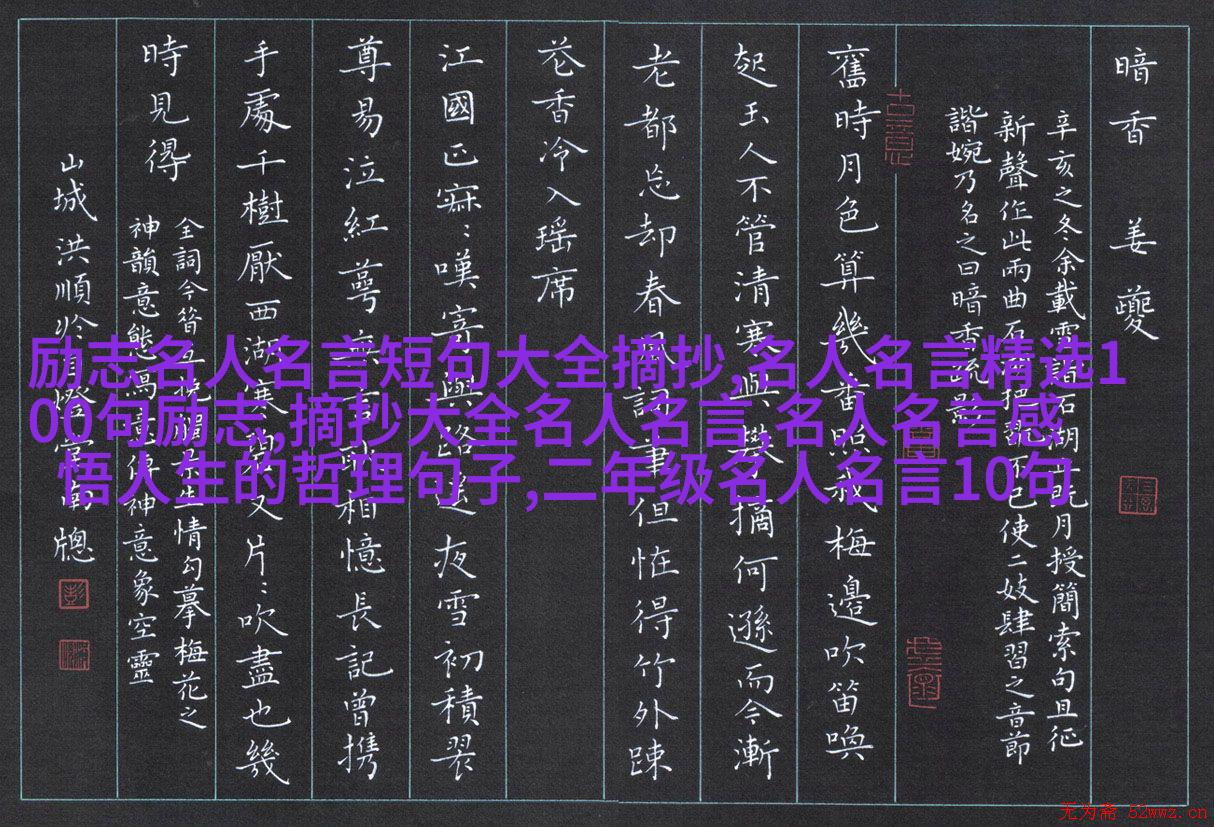 暗香 姜夔
辛亥之冬余載雪詣石湖止既月授簡索句且征
新聲作此兩曲石湖把翫不已使二妓肆習之音節
諧婉乃名之曰暗香疏影
古意
舊時月色算幾番照我梅邊吹笛喚
起玉人不管清寒與攀摘何遜而今漸
老都忘却春風詞筆但怪得竹外疎
花香冷入瑶席
江國正寂：嘆寄與路遥夜雪初積翠
尊易泣紅萼無言耿相憶長記曾携
手處千樹厭西湖寒碧又片：吹盡也幾
時見得
全詞今昔情勾摹梅花之
神韻意態寫意傳神意象空靈
山城洪順 南牕
励志名人名言短句大全摘抄,名人名言精选1
00句励志,摘抄大全名人名言,名人名言感
悟人生的哲理句子,二年级名人名言10句
无为斋 52wwz.cn